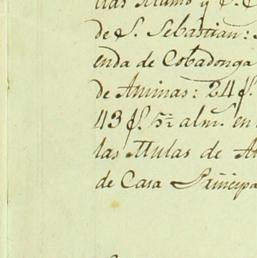 de S. Sebastian:
enda de Cobadonga
de Animas: 24 f.
43 f. 5 alm. en
las Mulas de
de Casa Principa